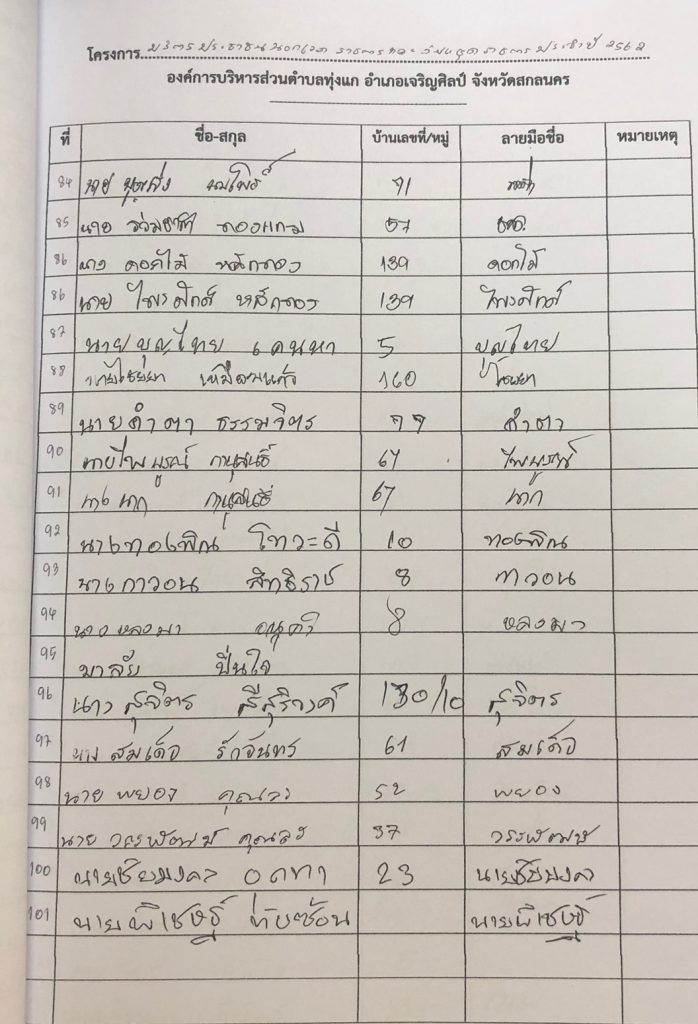 โครงการ บริการประชาชนนอกเวลาราชการและวันหยุดราชการประจำปี 2562
องค์การบริหารส่วนตำบลทุ่งแก อำเภอเจริญศิลป์ จังหวัดสกลนคร
ที่ ชื่อ-สกุล บ้านเลขที่/หมู่ ลายมือชื่อ หมายเหตุ
84 นาย 71
85 นาย 57
86 นาง ดอกไม้ หลักทอง 139 ดอกไม้
86 นาย ไพรศักดิ์ หลักทอง 139 ไพรศักดิ์
87 นายบุญไทย เคนหา 5 บุญไทย
88 160
89 นายคำตา ธรรมจิตร 77 คำตา
90 นายไพบูรณ์ 67 ไพบูรณ์
91 นาง 67
92 นางทองพิณ โทวะดี 10 ทองพิณ
93 นางถาวอน สิทธิราช 8 ถาวอน
94 นาง หลงมา 8 หลงมา
95 มาลัย ปื่นใจ
96 นาง สุจิตร สีสุริวงค์ 130/10 สุจิตร
97 นาง สมเด็จ รักจันทร 61 สมเด็จ
98 นาย พยอง คุณลง 52 พยอง
99 นาย วรรพัฒน์ คุณลง 37 วรรพัฒน์
100 นายชัยมงคล อดทา 23 นายชัยมงคล
101 นายพิเชษฐ์ ทับซ้อน นายพิเชษฐ์